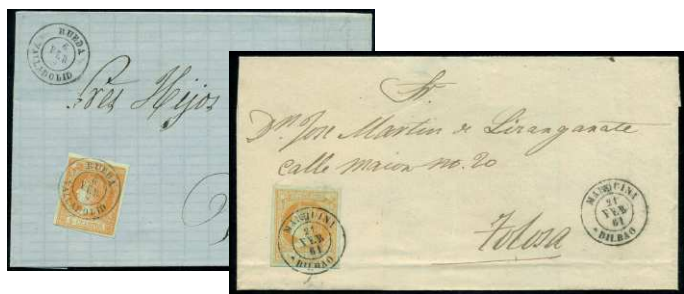 RUEDA
6
FEB
VALLADOLID
Sres Hijos
RUEDA
FEB
VALLADOLID
Sr.
Dn. Jose Martin de
calle maior no. 20
Tolosa
MARQUINA
21
FEB
61
BILBAO
MARQUINA
21
FEB
61
BILBAO